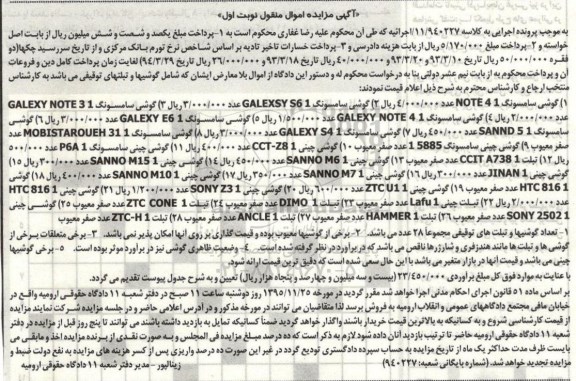 «آگهی مزایده اموال منقول نوبت اول»
به موجب پرونده اجرایی به کلاسه ۱۱/۹۴۰۲۲۷ اجرائیه که طی ان محکوم علیه رضا غفاری محکوم است به ۱-پرداخت مبلغ یکصد و شصت و شش میلیون ریال از بابت اصل
خواسته و ۲-پرداخت مبلغ ۵/۱۷۰/۰۰۰ ریال از بابت هزینه دادرسی و ۳-پرداخت خسارات تاخیر تادیه بر اساس شاخص نرخ تورم بانک مرکزی و از تاریخ سررسید چکها(دو
فقره ۵۰/۰۰۰/۰۰۰ ریال تاریخ ۹۳/۳/۱۰ و ۹۳/۲/۲۰ و فقره ۴۰/۰۰۰/۰۰۰ ریال ۹۳/۳/۱۸ و ۲۶/۰۰۰/۰۰۰ ریال ۹۴/۳/۲۹) لغایت زمان پرداخت کامل دین و فروعات
آن و پرداخت محکوم به از بابت نیم عشر دولتی بنا به درخواست محکوم له و دستور این دادگاه از اموال بلا معارض ایشان که شامل گوشیها و تبلتهای توقیفی می باشد به کارشناس
منتخب ارجاع و کارشناس محترم به شرح ذیل اعلام قیمت نمودند:
۱) گوشی سامسونگ NOTE 4 1 عدد ۴/۰۰۰/۰۰۰ ریال ۲) گوشی سامسونگ GALEXSY S6 1 عدد ۳/۰۰۰/۰۰۰ ریال ۳) گوشی سامسونگ GALEXY NOTE 3 1
عدد ۲/۰۰۰/۰۰۰ ریال ۴) گوشی سامسونگ GALEXY NOTE 4 1 عدد ۱/۵۰۰/۰۰۰ ریال ۵) گوشی سامسونگ GALEXY E6 1 عدد ۳/۰۰۰/۰۰۰ ریال ۶) گوشی
سامسونگ SANND 5 1 عدد ۴۵۰/۰۰۰ ریال ۷) گوشی سامسونگ GALAXY S4 1 عدد ۳/۰۰۰/۰۰۰ ریال ۸) گوشی سامسونگ MOBISTAROUEH 31 1 عدد
صفر معیوب ۹) گوشی چینی سامسونگ 5885 1 عدد صفر معیوب ۱۰) گوشی چینی CCT-Z8 1 عدد ۴۰۰/۰۰۰ ریال ۱۱) گوشی چینی سامسونگ P6A 1 عدد ۵۰۰/۰۰۰
ریال ۱۲) تبلت CCIT A738 1 عدد صفر معیوب ۱۳) گوشی چینی SANNO M6 1 عدد ۴۵۰/۰۰۰ ریال ۱۴) گوشی چینی SANNO M15 1 عدد ۳۰۰/۰۰۰ ریال ۱۵)
گوشی چینی JINAN 1 عدد ۳۰۰/۰۰۰ ریال ۱۶) گوشی چینی SANNO M7 1 عدد ۳۵۰/۰۰۰ ریال ۱۷) گوشی چینی SANNO M10 1 عدد ۴۰۰/۰۰۰ ریال ۱۸) گوشی
HTC 816 1 عدد صفر معیوب ۱۹) گوشی چینی ZTC U1 1 عدد ۶۰۰/۰۰۰ ریال ۲۰) گوشی SONY Z3 1 عدد ۱/۲۰۰/۰۰۰ ریال ۲۱) گوشی چینی HTC 816 1
عدد ۲/۰۰۰/۰۰۰ ریال ۲۲) تبلت چینی Lafu 1 عدد صفر معیوب ۲۳) تبلت DIMO 1 عدد صفر معیوب ۲۴) تبلت ZTC CONE 1 عدد صفر معیوب ۲۵) گوشی چینی
SONY 2502 1 عدد صفر معیوب ۲۶) تبلت HAMMER 1 عدد صفر معیوب ۲۷) تبلت ANCLE 1 عدد صفر معیوب ۲۸) تبلت ZTC-H 1 عدد صفر معیوب
۱- تعداد گوشیها و تبلت های توقیفی مجموعاً ۲۸ عدد می باشد. ۲-برخی از گوشیها معیوب بوده و قیمت گذاری بر روی آنها امکان پذیر نمی باشد. ۳-برخی متعلقات برخی از
گوشی ها و تبلت ها مانند هندزفری و شارژرها ناقص می باشد که در برآورد در نظر گرفته شده است. ۴- وضعیت ظاهری گوشی نیز در برآورد موثر بوده است. ۵- برخی گوشیها
چینی می باشد و قیمت آنها در بازار متغیر می باشد با این حال سعی شده است که دقیق ترین قیمت ارائه شود.
با عنایت به موارد فوق کل مبلغ برآوردی ۲۳/۴۵۰/۰۰۰ (بیست و سه میلیون و چهارصد و پنجاه هزار ریال) تعیین و به شرح جدول پیوست تقدیم می گردد.
بر اساس ماده ۵۱ قانون اجرای احکام مدنی اجرا خواهد شد مقرر گردید در مورخه ۱۳۹۵/۱۱/۲۵ روز دوشنبه ساعت ۱۱ صبح در دفتر شعبه ۱۱ دادگاه حقوقی ارومیه واقع در
خیابان مافی مجتمع دادگاههای عمومی و انقلاب ارومیه به فروش برسد لذا متقاضیان می توانند در مورخه مذکور و در آدرس اعلامی حاضر و در جلسه مزایده شرکت نمایند مزایده
از قیمت کارشناسی شروع و به کسانیکه به بالاترین قیمت خریدار باشند واگذار خواهد گردید ضمناً کسانیکه تمایل به بازدید داشته باشند می توانند تا پنج روز قبل از مزایده در دفتر
شعبه ۱۱ دادگاه حقوقی ارومیه حاضر تا ترتیب بازدید آنان داده شود لازم به ذکر است که ده درصد مبلغ مزایده فی المجلس و به صورت نقدی از برنده مزایده اخذ و مابقی می
بایست ظرف مدت حداکثر یک ماه از تاریخ مزایده به حساب سپرده دادگستری تودیع گردد در غیر این صورت ده درصد واریزی پس از کسر هزینه های مزایده به نفع دولت ضبط و
مزایده تجدید خواهد شد. (شماره بایگانی شعبه: ۹۴۰۲۲۷) زینالپور - مدیر دفتر شعبه ۱۱ دادگاه حقوقی ارومیه